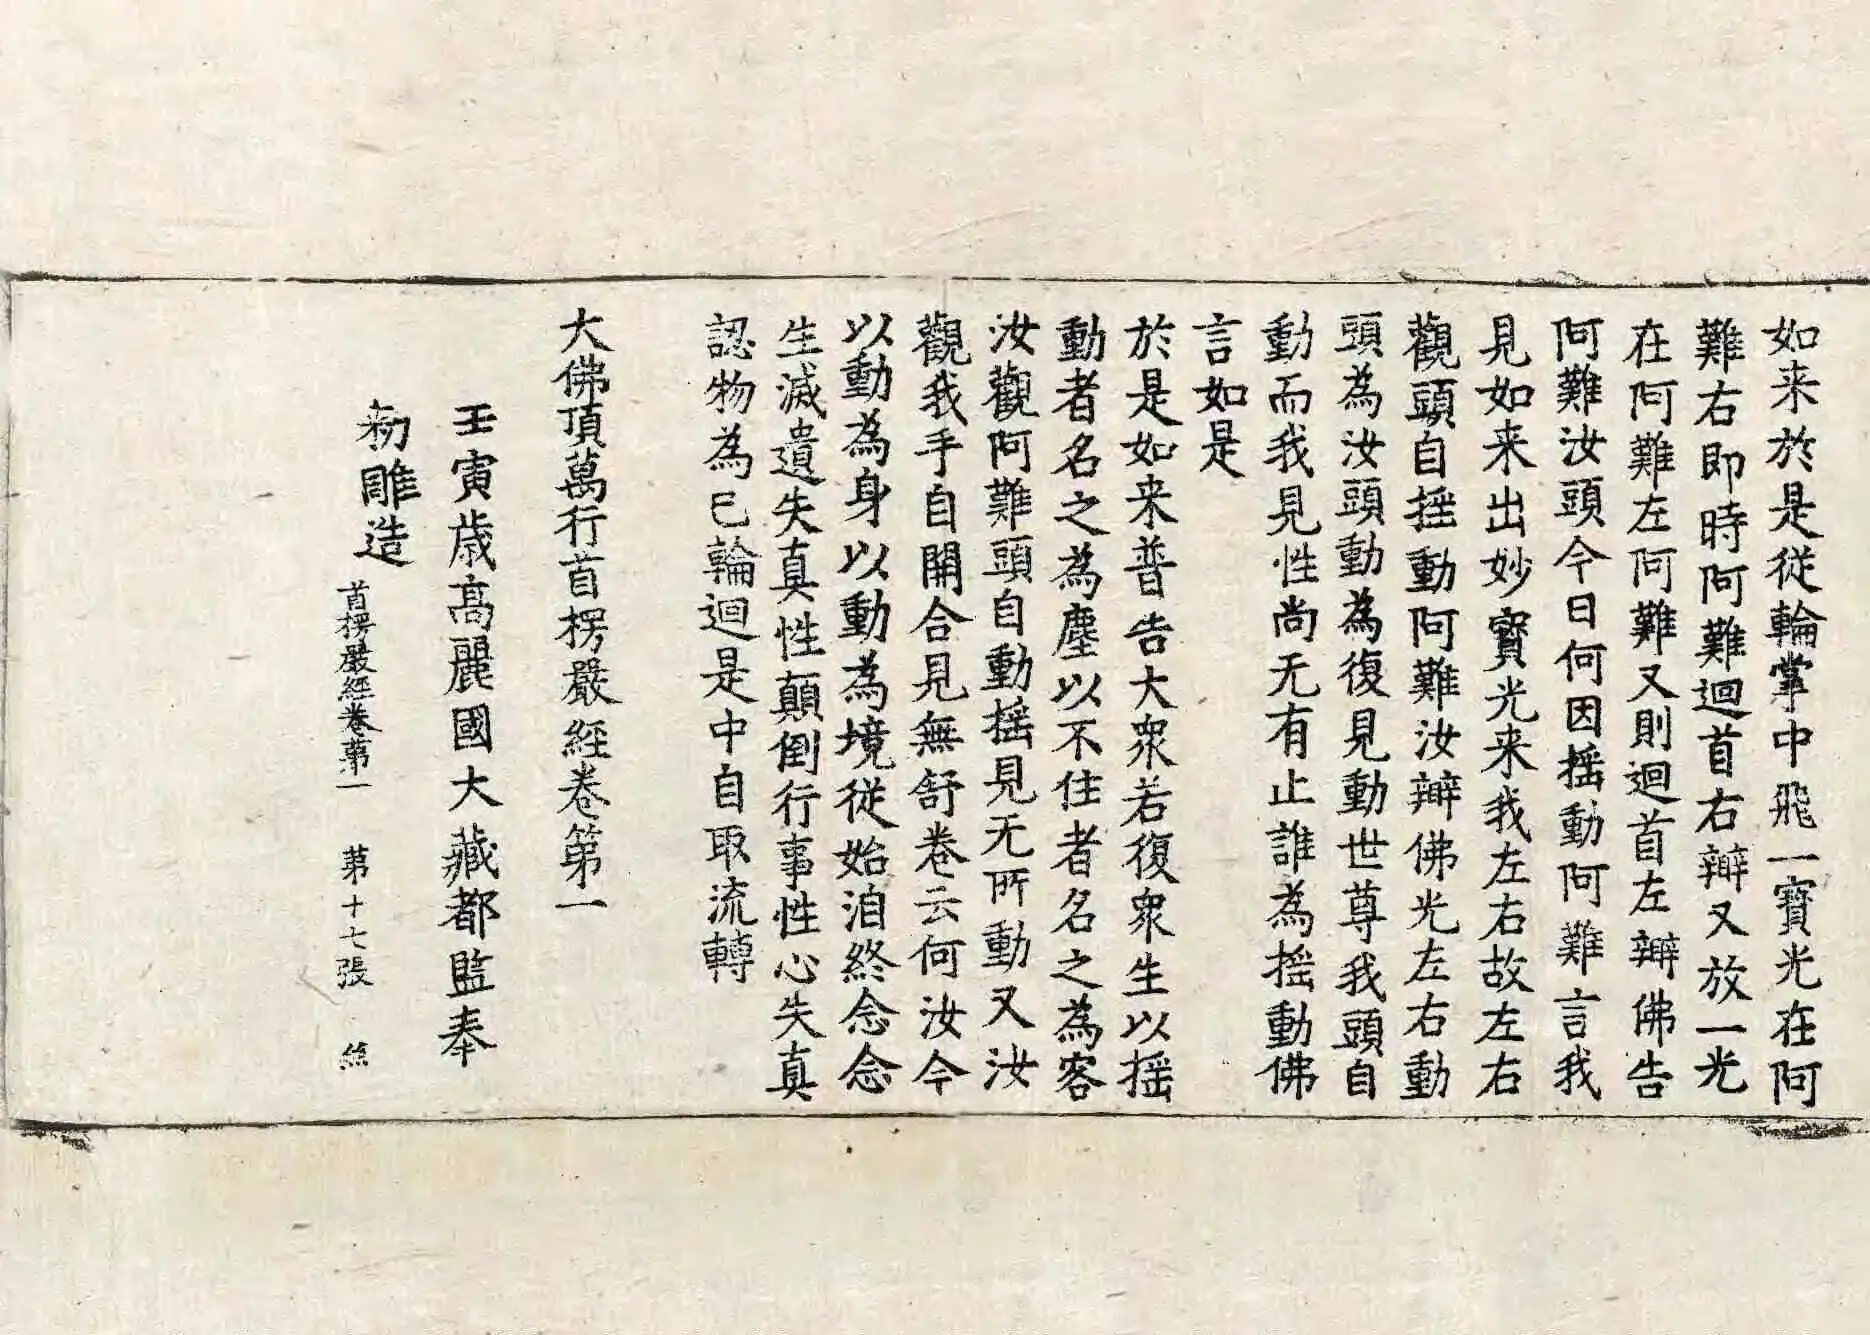 如来於是從輪掌中飛一寶光在阿
難右即時阿難迴首右辯又放一光
在阿難左阿難又則迴首左辯佛告
阿難汝頭今日何因揺動阿難言我
見如来出妙寳光来我左右故左右
觀頭自揺動阿難汝辯佛光左右動
頭為汝頭動為復見動世尊我頭自
動而我見性尚无有止誰為揺動佛
言如是
於是如来普告大衆若復衆生以揺
動者名之為塵以不住者名之為客
汝觀阿難頭自動揺見无所動又汝
觀我手自開合見無舒卷云何汝今
以動為身以動為境從始洎終念念
生滅遺失真性顛倒行事性心失真
認物為已輪迴是中自取流轉
大佛頂萬行首楞嚴經卷第一
壬寅歳高麗國大藏都監奉
勑雕造
首楞嚴經卷第一 第十七張 絲